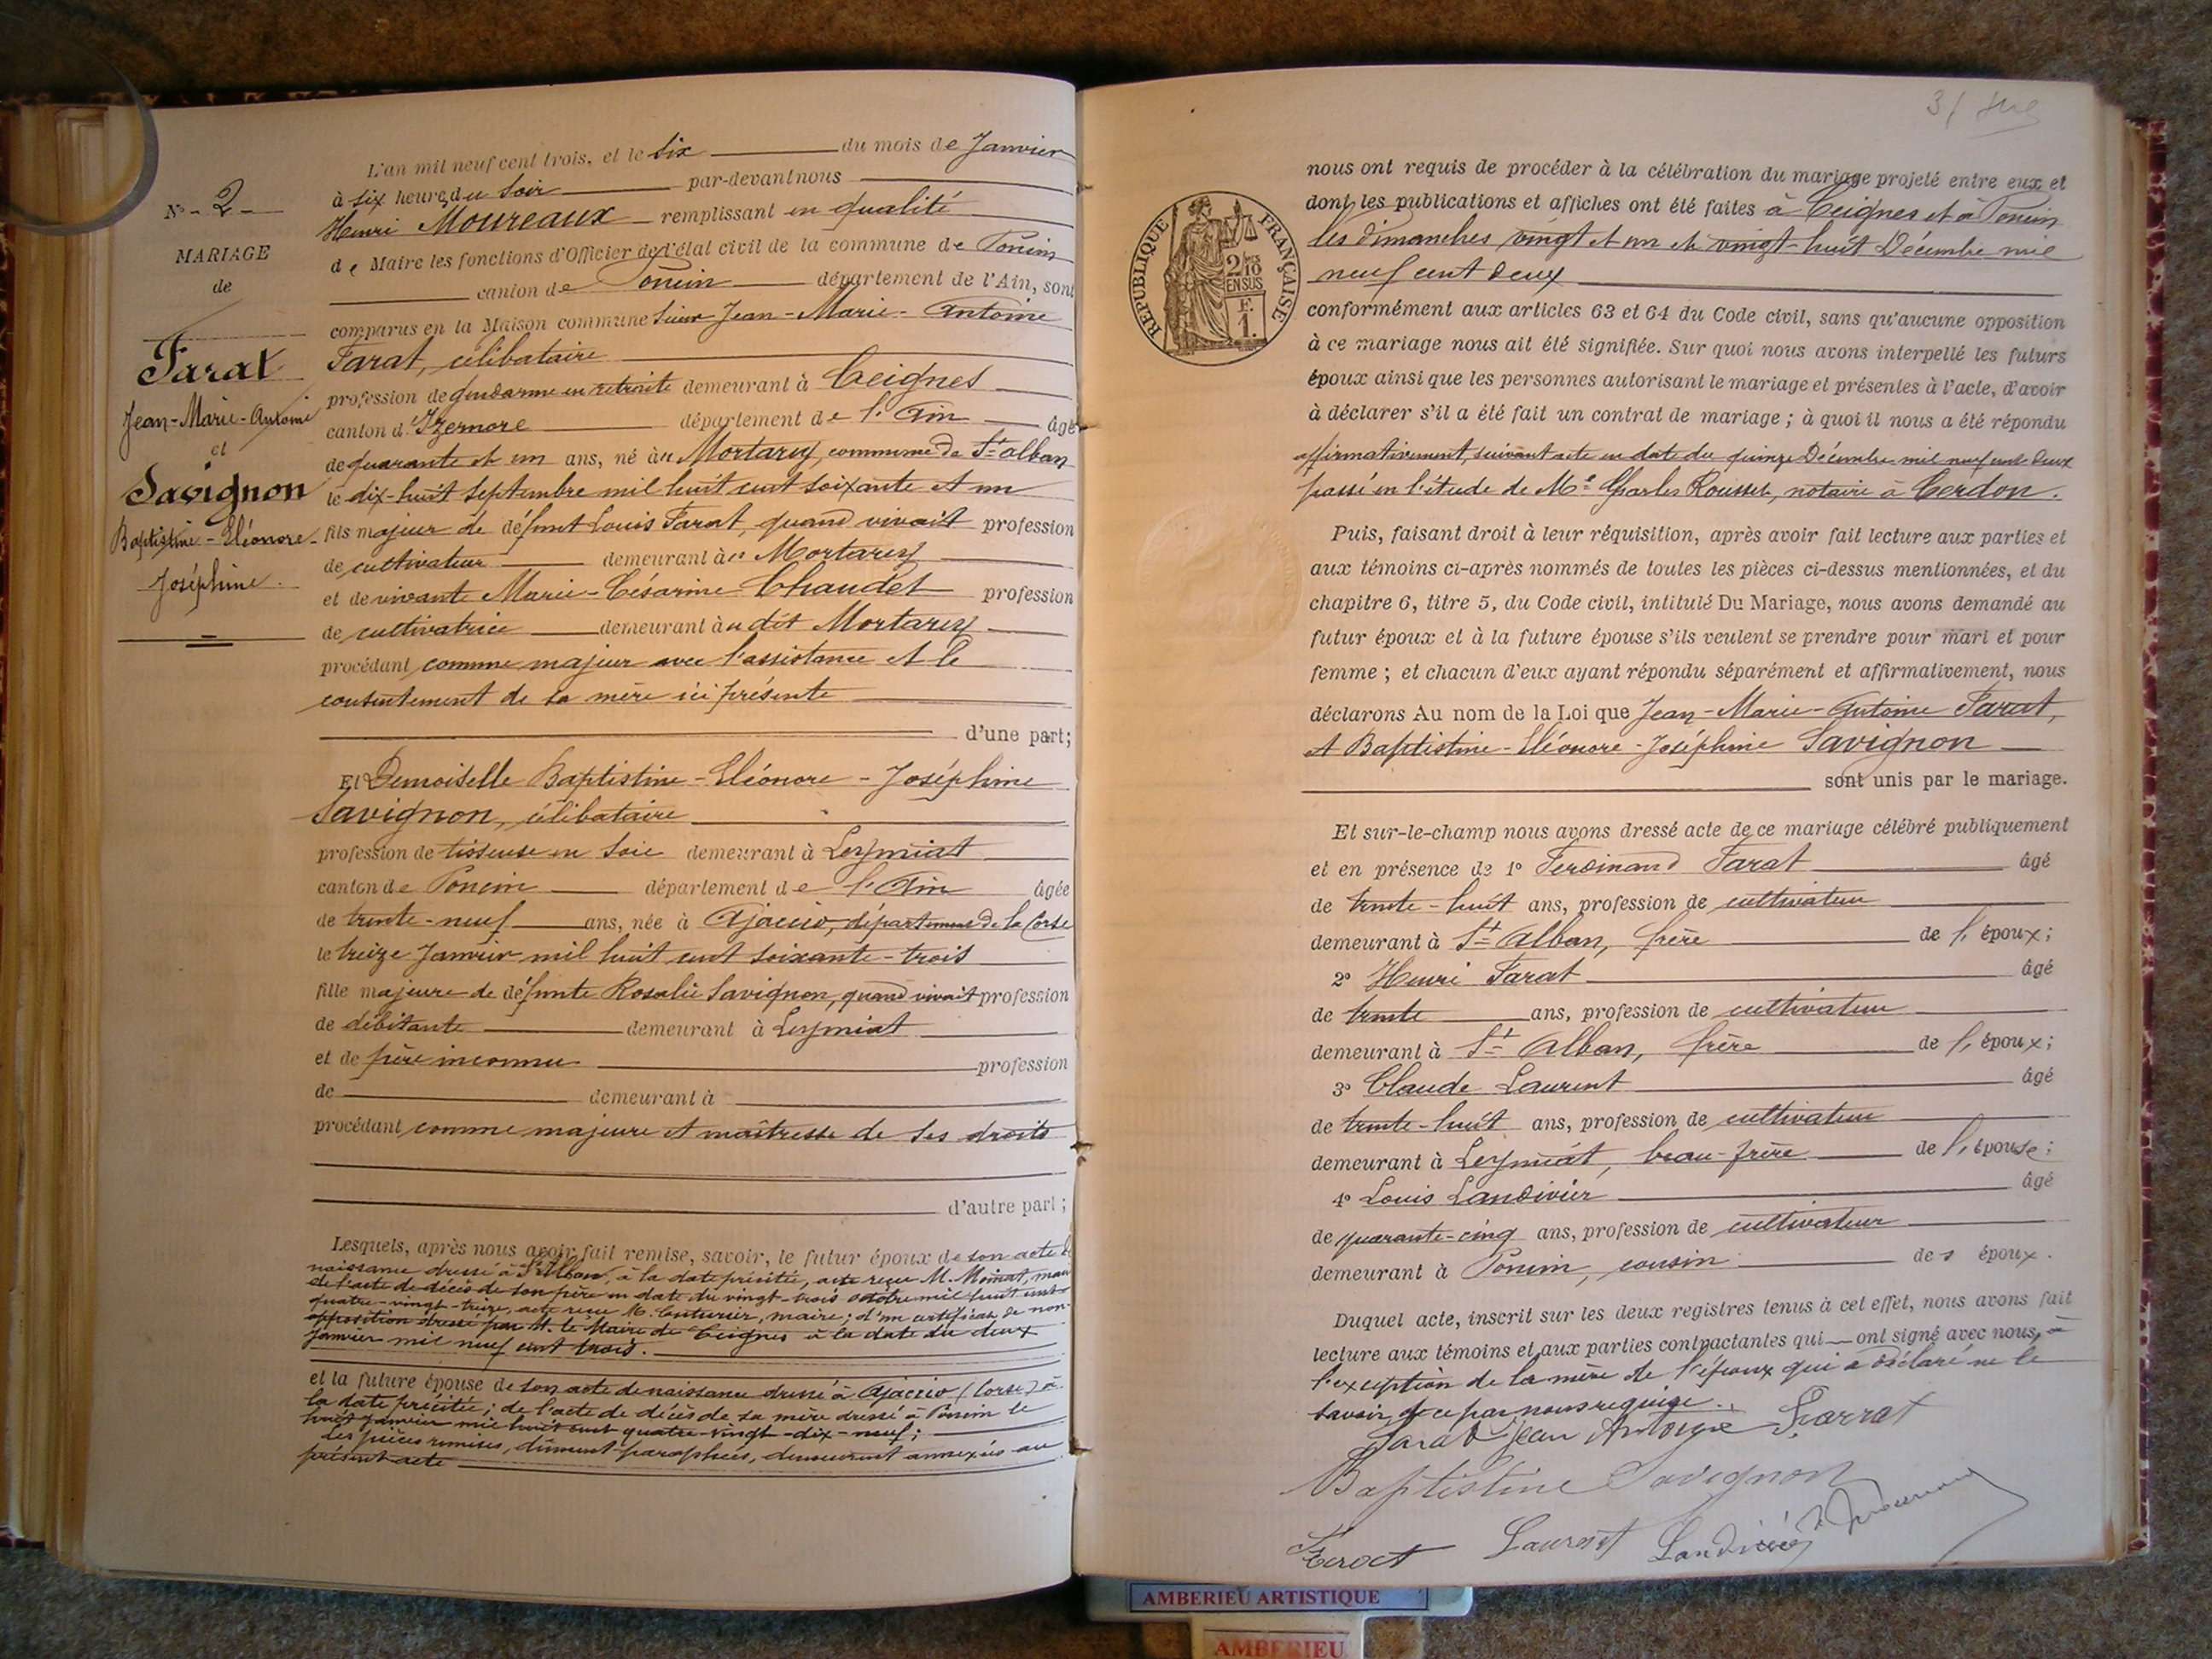 N° - 2 -
MARIAGE
de
Farat
Jean-Marie-Antoine
et
Savignon
Baptistine-Eléonore-
Joséphine.
L'an mil neuf cent trois, et le six du mois de Janvier
à six heure du soir par-devant nous
Henri Moureaux remplissant en qualité
de Maire les fonctions d'Officier de l'état civil de la commune de Poncin
canton de Poncin département de l'Ain, sont
comparus en la Maison commune Sieur Jean-Marie-Antoine
Farat, célibataire
profession de gendarme en retraite demeurant à Ceignes
canton d'Izernore département de l'Ain âgé
de quarante et un ans, né au Mortarey, commune de St alban
le dix-huit Septembre mil huit cent soixante et un
fils majeur de défunt Louis Farat, quand vivait profession
de cultivateur demeurant au Mortarey
et de vivante Marie-Césarine Chaudet profession
de cultivatrice demeurant au dit Mortarey
procédant comme majeur avec l'assistance et le
consentement de sa mère ici présente
d'une part;
Et Demoiselle Baptistine-Eléonore-Joséphine
Savignon, célibataire
profession de tisseuse en soie demeurant à Leymiat
canton de Poncin département de l'Ain âgée
de trente-neuf ans, née à Ajaccio, département de la Corse
le treize Janvier mil huit cent soixante-trois
fille majeure de défunte Rosalie Savignon, quand vivait profession
de débitante demeurant à Leymiat
et de père inconnu profession
de demeurant à
procédant comme majeure et maîtresse de ses droits
d'autre part;
Lesquels, après nous avoir fait remise, savoir, le futur époux de son acte de
naissance dressé à St Alban, à la date précitée, acte reçu M. Moinat, maire
de l'acte de décès de son père en date du vingt-trois octobre mil huit cent
quatre-vingt-treize, acte reçu M. Couturier, maire; d'un certificat de non-
opposition dressé par M. le Maire de Ceignes à la date du deux
Janvier mil neuf cent trois.
et la future épouse de son acte de naissance dressé à Ajaccio (Corse) à
la date précitée; de l'acte de décès de sa mère dressé à Poncin le
huit Janvier mil huit cent quatre-vingt-dix-neuf;
Les pièces remises, dûment paraphées, demeurent annexées au
présent acte
3/
REPUBLIQUE FRANÇAISE
2/10
EN SUS
F.
1.
nous ont requis de procéder à la célébration du mariage projeté entre eux et
dont les publications et affiches ont été faites à Ceignes et à Poncin
les dimanches vingt et un et vingt-huit Décembre mil
neuf cent deux
conformément aux articles 63 et 64 du Code civil, sans qu'aucune opposition
à ce mariage nous ait été signifiée. Sur quoi nous avons interpellé les futurs
époux ainsi que les personnes autorisant le mariage et présentes à l'acte, d'avoir
à déclarer s'il a été fait un contrat de mariage; à quoi il nous a été répondu
affirmativement, suivant acte en date du quinze Décembre mil neuf cent deux
passé en l'étude de Me Charles Rousset, notaire à Cerdon.
Puis, faisant droit à leur réquisition, après avoir fait lecture aux parties et
aux témoins ci-après nommés de toutes les pièces ci-dessus mentionnées, et du
chapitre 6, titre 5, du Code civil, intitulé Du Mariage, nous avons demandé au
futur époux et à la future épouse s'ils veulent se prendre pour mari et pour
femme; et chacun d'eux ayant répondu séparément et affirmativement, nous
déclarons Au nom de la Loi que Jean-Marie-Antoine Farat,
et Baptistine-Eléonore-Joséphine Savignon
sont unis par le mariage.
Et sur-le-champ nous avons dressé acte de ce mariage célébré publiquement
et en présence de 1° Ferdinand Farat âgé
de trente-huit ans, profession de cultivateur
demeurant à St Alban, frère de l'époux;
2° Henri Farat âgé
de trente ans, profession de cultivateur
demeurant à St Alban, frère de l'époux;
3° Claude Laurent âgé
de trente-huit ans, profession de cultivateur
demeurant à Leymiat, beau-frère de l'épouse;
4° Louis Landivier âgé
de quarante-cinq ans, profession de cultivateur
demeurant à Poncin, cousin des époux.
Duquel acte, inscrit sur les deux registres tenus à cet effet, nous avons fait
lecture aux témoins et aux parties contractantes qui ont signé avec nous, à
l'exception de la mère de l'époux qui a déclaré ne le
savoir de ce par nous requise.
Farat Jean Antoine Farrat
Baptistine Savignon
Laurent Landivier
AMBERIEU ARTISTIQUE
AMBERIEU